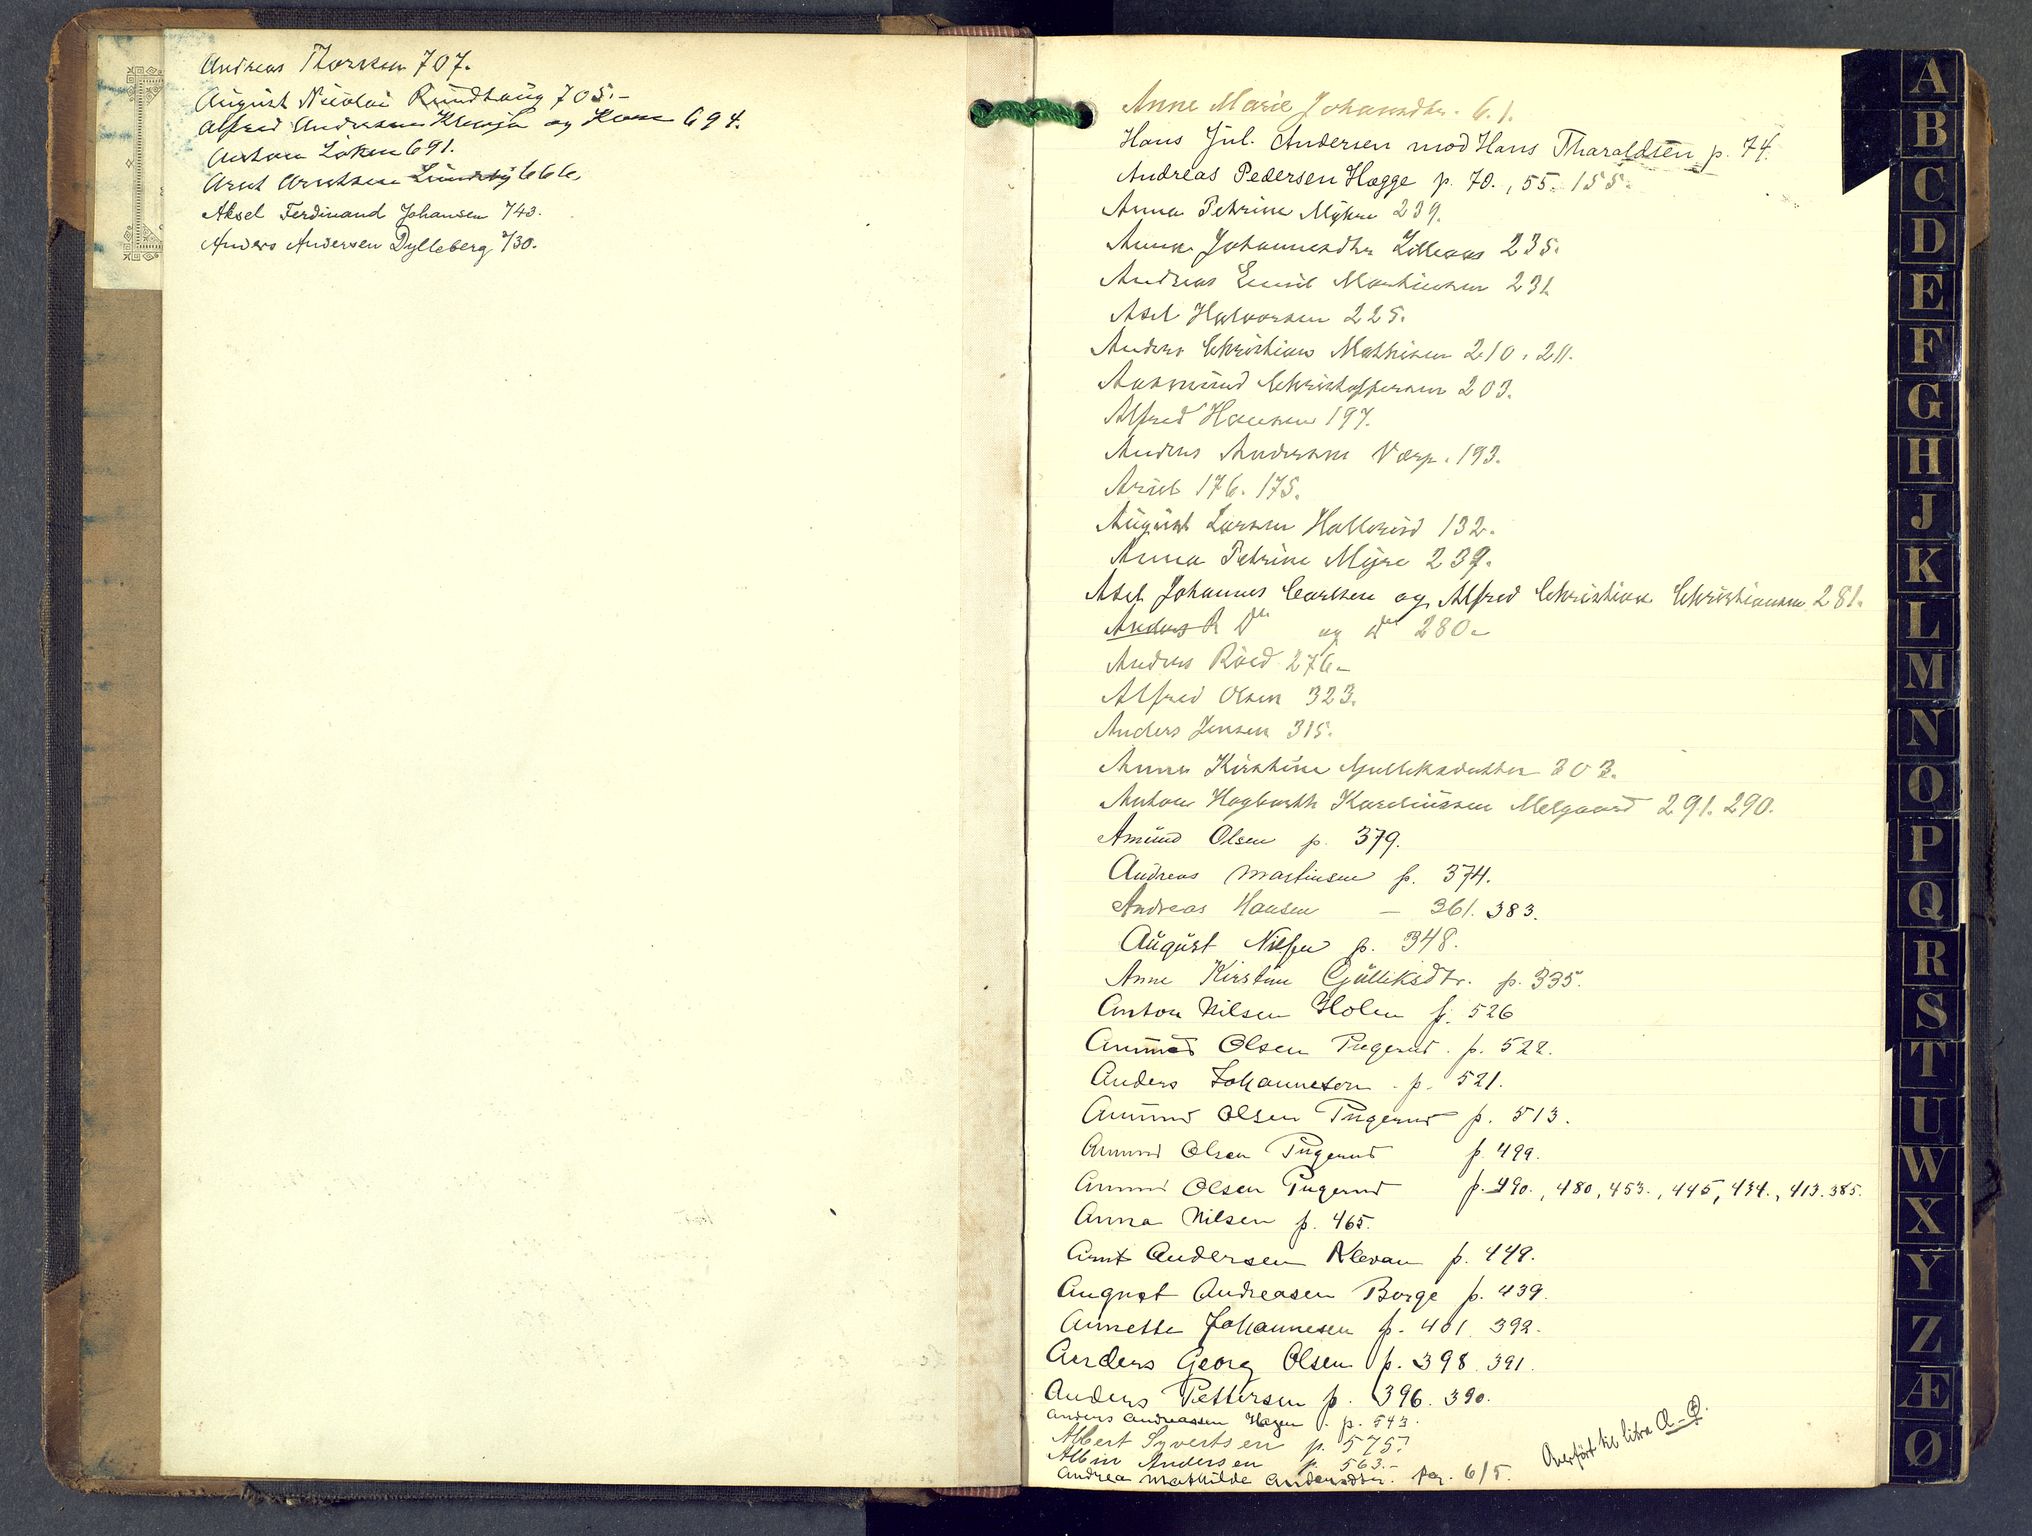 Andreas Thorsen 707.
August Nicolai Rundhaug 705.-
Alfred Andersen og 694.
Anton Löken 691.
Arnt Arntsen Lundeby 666.
Aksel Ferdinand Johansen 743.
Anders Andersen Dylleberg 730.
Anne Marie Johannsdtr. 61.
Hans Jul. Andersen mod Hans Tharaldsen p. 74.
Andreas Pedersen Hagge p. 70., 55. 155.
Anna Petrine Myhre 239.
Anna Johannesdtr Lilleaas 235.
Andreas Emil Mathiesen 231
Axel Halvorsen 225.
Anders Christian Mathisen 210. 211.
Aasmund Christophersen 203.
Alfred Hansen 197.
Anders Andersen Værp. 193.
176. 175.
August Larsen Hallerud 132.
Anna Petrine Myre 239.
Axel Johannes Carlsen og Alfred Christian Christiansen 281.
Anders R Do og do 280-
Anders Röed 276-
Alfred Olsen 323.
Anders Jensen 315.
Anne Kirstine Gulliksdatter 303.
Anton Hagbarth Kareliussen Melgaard 291. 290.
Amund Olsen p. 379.
Andreas Martinsen p. 374.
Andreas Hansen - 361. 383.
August Nilsen p. 348.
Anne Kirstine Gulliksdtr. p. 335.
Anton Nilsen Holen p. 526
Amund Olsen Pugerud. p. 522.
Anders Johannesen. p. 521.
Amund Olsen Pugerud p. 513.
Amund Olsen Pugerud p. 499.
Amund Olsen Pugerud p. 490., 480, 453., 445, 434., 413. 385.
Anna Nilsen p. 465.
Arnt Andersen Klevan p. 449.
August Andreasen Borge p. 439.
Annette Johannesen p. 401. 392.
Anders Georg Olsen p. 398. 391.
Anders Pettersen p. 396. 390.
Anders Andreassen Hagen p. 543.
Albert Syvertsen p. 575.
Albin Andersen p. 563.-
Andrea Mathilde Andersdtr. pag. 615.
Overført til litra Q-
A
B
C
D
E
F
G
H
J
K
L
M
N
O
P
Q
R
S
T
U
W
X
Y
Z
Æ
Ø